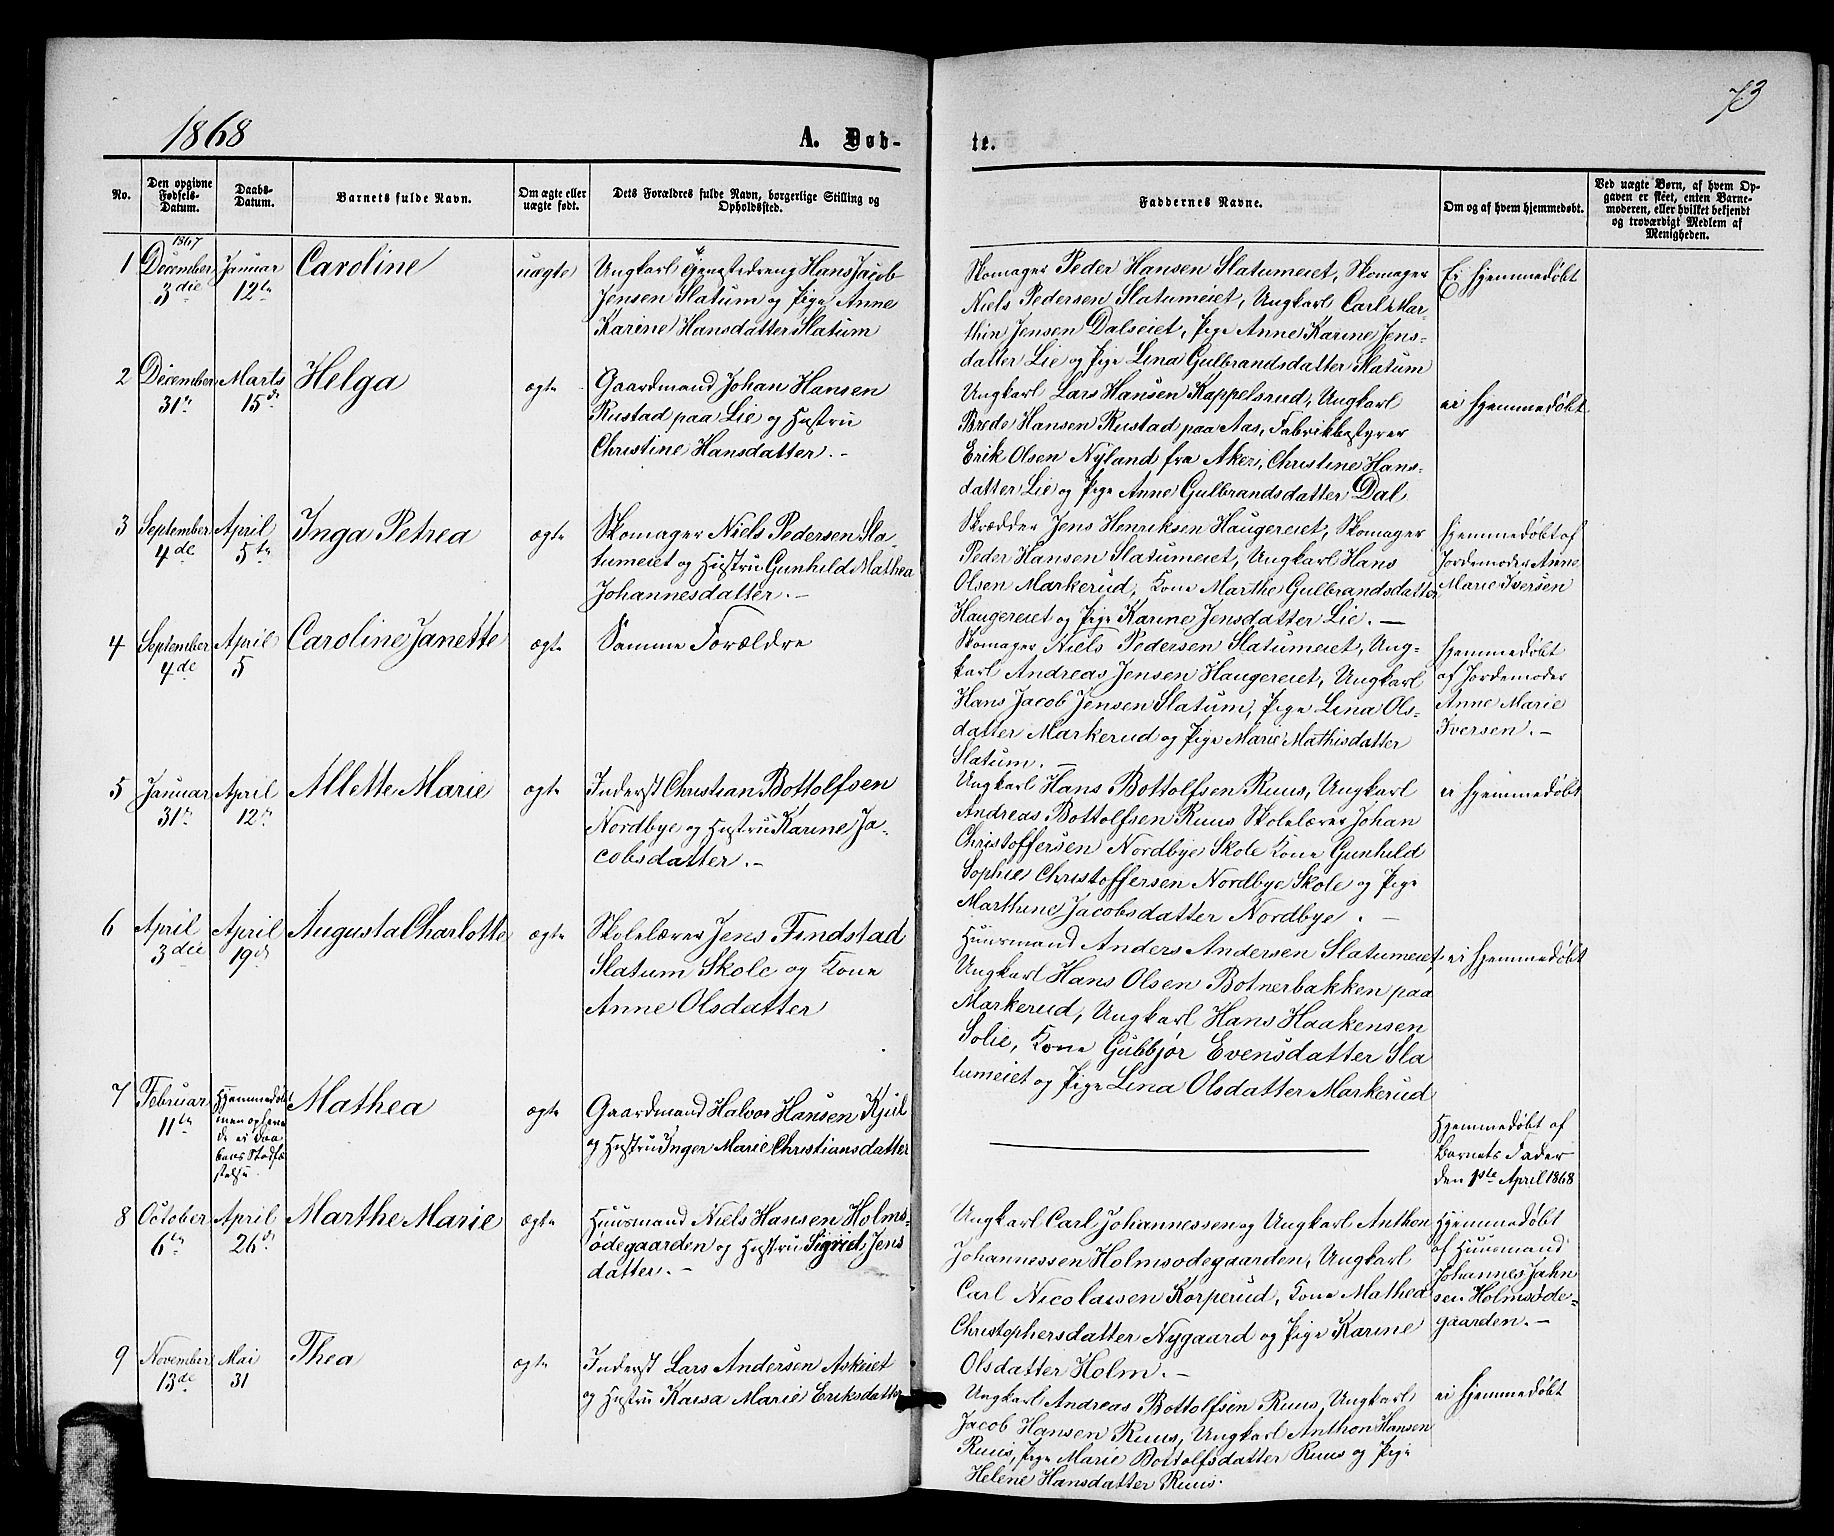 1868
A. Døb-
te.
73
No.
Den opgivne
Fødsels-
Datum.
Daabs-
Datum.
Barnets fulde Navn.
Om ægte eller
uægte født.
Dets Forældres fulde Navn, borgerlige Stilling og
Opholdssted.
Faddernes Navne.
Om og af hvem hjemmedøbt.
Ved uægte Børn, af hvem Op-
gaven er skeet, enten Barne-
moderen, eller hvilket bekjendt
og troværdigt Medlem af
Menigheden.
1
1867
December
3die
Januar
12te
Caroline
uægte
Ungkarl Gjenstedreng Hans Jacob
Jensen Slatum og Pige Anne
Karine Hansdatter Slatum
Skomager Peder Hansen Slatumeiet, Skomager
Niels Pedersen Slatumeiet, Ungkarl Carl Mar-
thin Jensen Dalseiet, Pige Anne Karine Jens-
datter Lie og Pige Lina Gulbrandsdatter Slatum
Ei hjemmedøbt
2
December
31te
Marts
15de
Helga
ægte
Gaardmand Johan Hansen
Rustad paa Lie og Hustru
Christine Hansdatter. -
Ungkarl Lars Hansen Kappelsrud, Ungkarl
Brede Hansen Rustad paa Aas, Fabrikbestyrer
Erik Olsen Nyland fra Aker, Christine Hans-
datter Lie og Pige Anne Gulbrandsdatter Dal
ei hjemmedøbt
3
September
4de
April
5te
Inga Petrea
ægte
Skomager Niels Pedersen Sla-
tumeiet og Hustru Gunhild Mathea
Johannesdatter. -
Skrædder Jens Henriksen Haugereiet, Skomager
Peder Hansen Slatumeiet, Ungkarl Hans
Olsen Markerud, Kone Marthe Gulbrandsdatter
Haugereiet og Pige Karine Jensdatter Lie. -
hjemmedøbt af
Jordemoder Anne
Marie Iversen
4
September
4de
April
5
Caroline Janette
ægte
Samme Forældre
Skomager Niels Pedersen Slatumeiet, Ung-
karl Andreas Jensen Haugereiet, Ungkarl
Hans Jacob Jensen Slatum, Pige Lina Ols-
datter Markerud og Pige Marie Mathisdatter
Slatum. -
hjemmedøbt
af Jordemoder
Anne Marie
Iversen. -
5
Januar
31te
April
12te
Allette Marie
ægte
Inderst Christian Bottolfsen
Nordbye og Hustru Karine Ja-
cobsdatter. -
Ungkarl Hans Bottolfsen Ruus, Ungkarl
Andreas Bottolfsen Ruus Skolelærer Johan
Christoffersen Nordbye Skole Kone Gunhild
Sophie Christoffersen Nordbye Skole og Pige
Marthine Jacobsdatter Nordbye. -
ei hjemmedøbt
6
April
3die
April
19de
Augusta Charlotte
ægte
Skolelærer Jens Findstad
Slatum Skole og Kone
Anne Olsdatter
Huusmand Anders Andersen Slatumeiet,
Ungkarl Hans Olsen Botnerbakken paa
Markerud, Ungkarl Hans Haakensen
Solie, Kone Gubbjør Evensdatter Sla
tumeiet og Pige Lina Olsdatter Markerud
ei hjemmedøbt
7
Februar
11te
Hjemmedøbt
Mathea
ægte
Gaardmand Halvor Hansen Kjul
og Hustru Inger Marie Christiansdatter
Hjemmedøbt af
Barnets Fader
den 1ste April 1868
8
October
6te
April
26de
Marthe Marie
ægte
Huusmand Niels Hansen Holms-
ødegaarden og Hustru Sigrid Jens
datter. -
Ungkarl Carl Johannessen og Ungkarl Anthon
Johannessen Holmsødegaarden, Ungkarl
Carl Nicolaisen Korperud, Kone Mathea
Christophersdatter Nygaard og Pige Karine
Olsdatter Holm. -
Hjemmedøbt
af Huusmand
Johannes Jahn
sen Holmsøde-
gaarden. -
9
November
13de
Mai
31
Thea
ægte
Inderst Lars Andersen Askeiet
og Hustru Kaisa Marie Eriksdatter
Ungkarl Andreas Bottolfsen Ruus, Ungkarl
Jacob Hansen Ruus, Ungkarl Anthon Hansen
Ruus, Pige Marie Bottolfsdatter Ruus og Pige
Helene Hansdatter Ruus.
ei hjemmedøbt